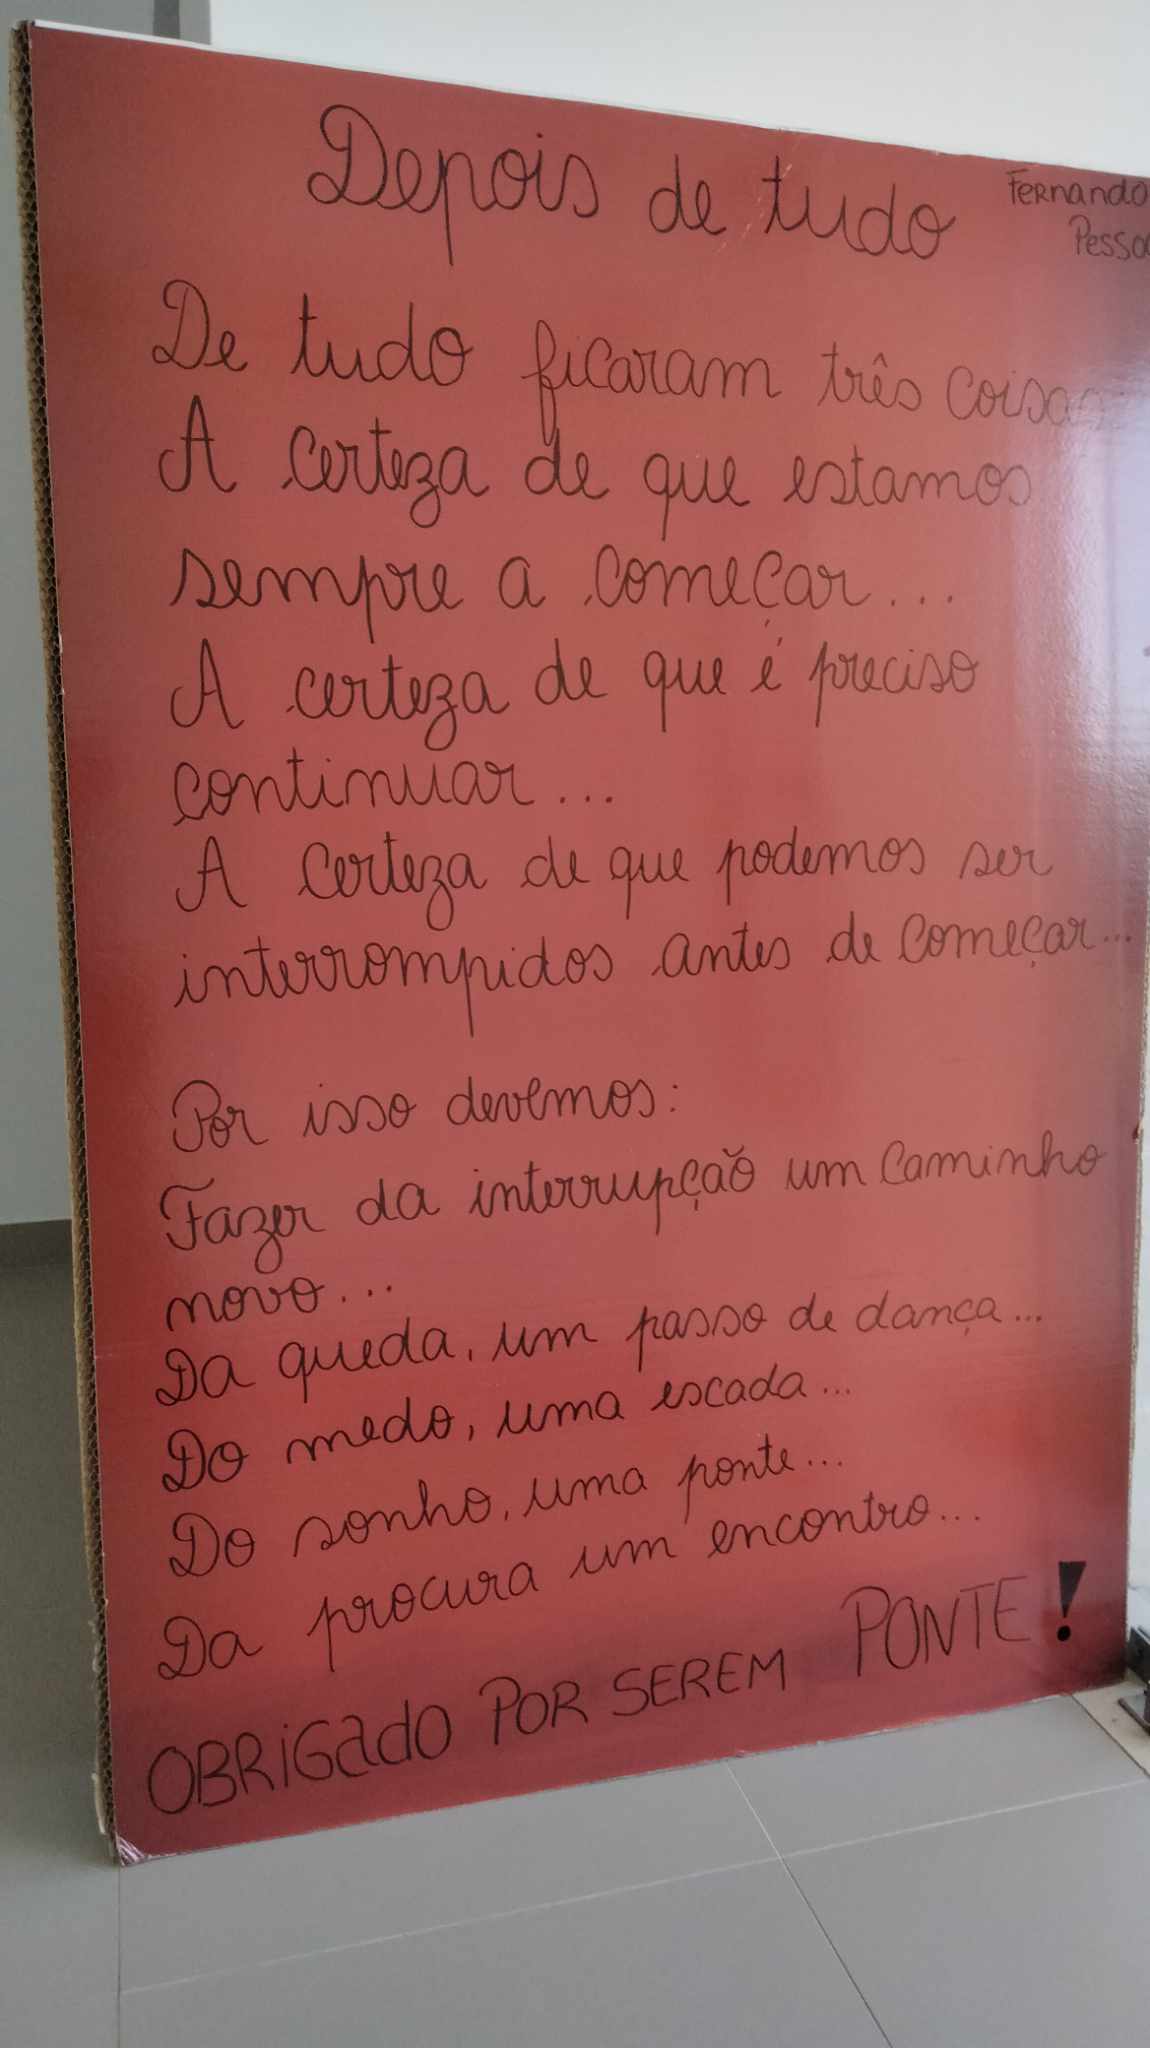 Depois de tudo
Fernando
Pessoa
De tudo ficaram três coisas:
A certeza de que estamos
sempre a começar...
A certeza de que é preciso
continuar...
A certeza de que podemos ser
interrompidos antes de começar...
Por isso devemos:
Fazer da interrupção um caminho
novo...
Da queda, um passo de dança...
Do medo, uma escada...
Do sonho, uma ponte...
Da procura um encontro...
OBRIGadO POR SEREM PONTE!